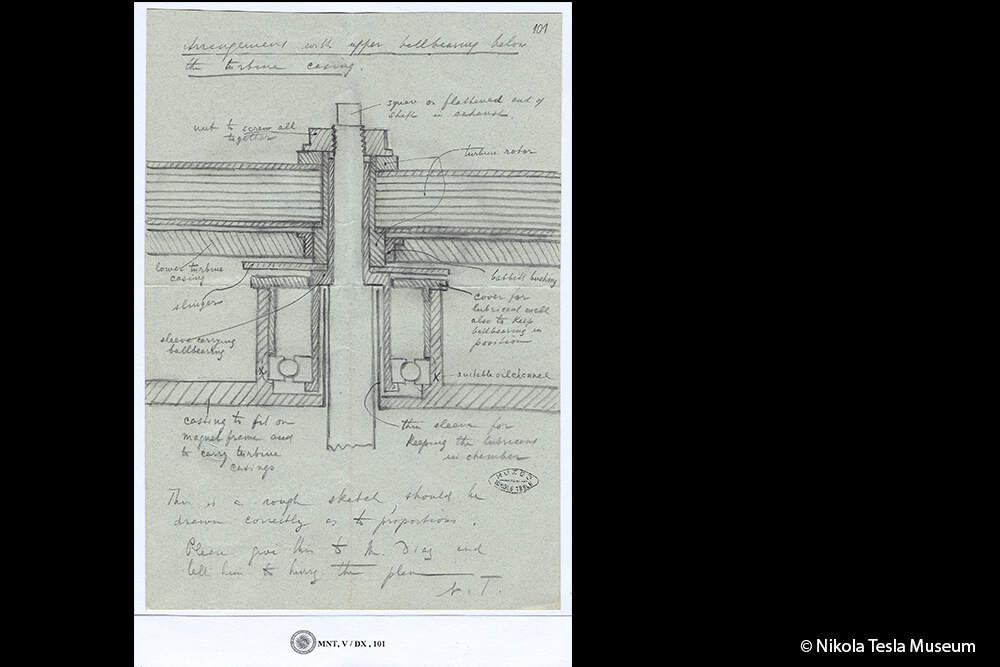 101
Arrangement with upper ballbearing below
the turbine casing.
square or flattened end of
shaft in exhaust.
nut to screw all
together
turbine rotor
lower turbine
casing
babbitt bushing
slinger
cover for
lubricant well
also to keep
ballbearing in
position
sleeve carrying
ballbearing
x
x
suitable oilchannel
casting to fit on
magnet frame and
to carry turbine
casings.
thin sleeve for
keeping the lubricant
in chamber
This is a rough sketch, should be
drawn correctly as to proportions.
Please give this to Mr. Diaz and
tell him to hurry the plan
N. T.
MNT, V / DX , 101
© Nikola Tesla Museum